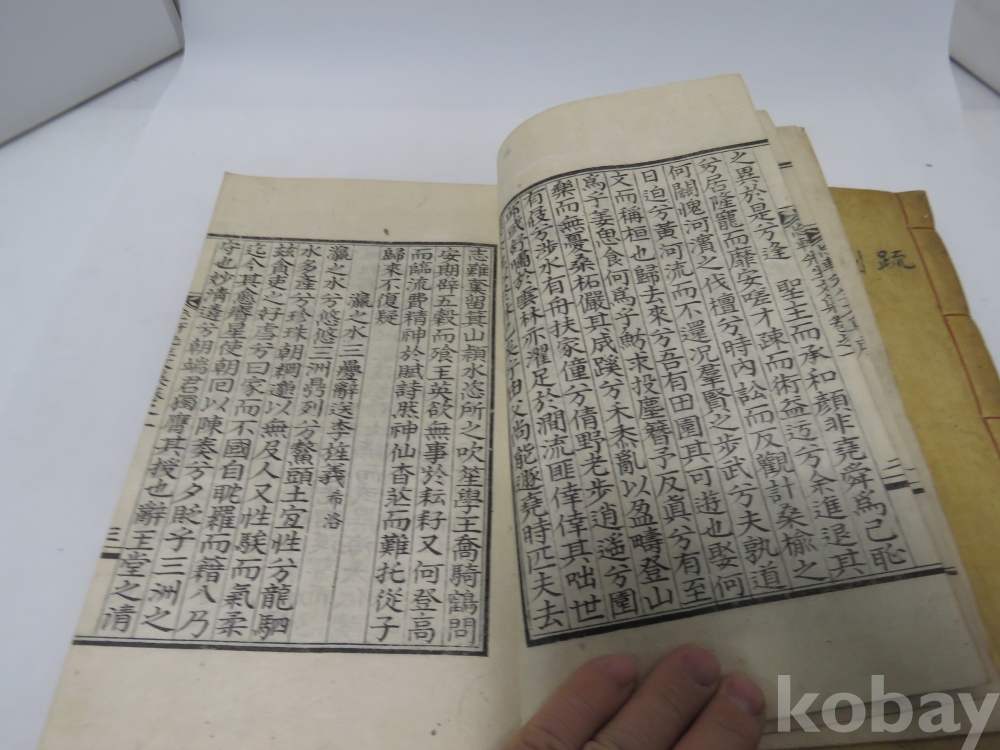 之異於是兮逢 聖王而承和顔非堯舜爲己恥
兮居隆寵而靡安嗟才疎而術益迂兮余進退其
何關愧河濱之伐檀兮時內訟而反觀計桑楡之
日迫兮黃河流而不還况羣賢之步武兮夫孰道
文而稱桓也歸去來兮吾有田園其可遊也娶何
爲乎姜思食何爲乎魴求投塵簪予反眞兮有至
樂而無憂桑柘儼其成蹊兮禾黍亂以盈疇登山
有屐兮涉水有舟扶家僮兮倩野老步逍遙兮園
或舒嘯於雲林亦濯足於澗流匪倖倖其咄世
父尚能遯堯時匹夫去
志難棄留箕山潁水恣所之吹笙學王喬騎鶴問
安期辟五穀而飧玉英欲無事於耘耔又何登高
而臨流費精神於賦詩然神仙杳茫而難托從子
歸來不復疑
瀛之水三疊辭送李旌義希洛
瀛之水兮悠悠三洲鼎列兮鰲頭土宜性兮龍駟
水多産兮珍珠朝綱邈以無及人又性騃而氣柔
玆貪吏之好虐兮曰家而不國自耽羅而籍入乃
迄今其愈瘽星使朝回以陳奏兮夕眡乎三洲之
守也抄情達兮朝端君獨膺其授也辭玉堂之清
三
三
疏
kobay